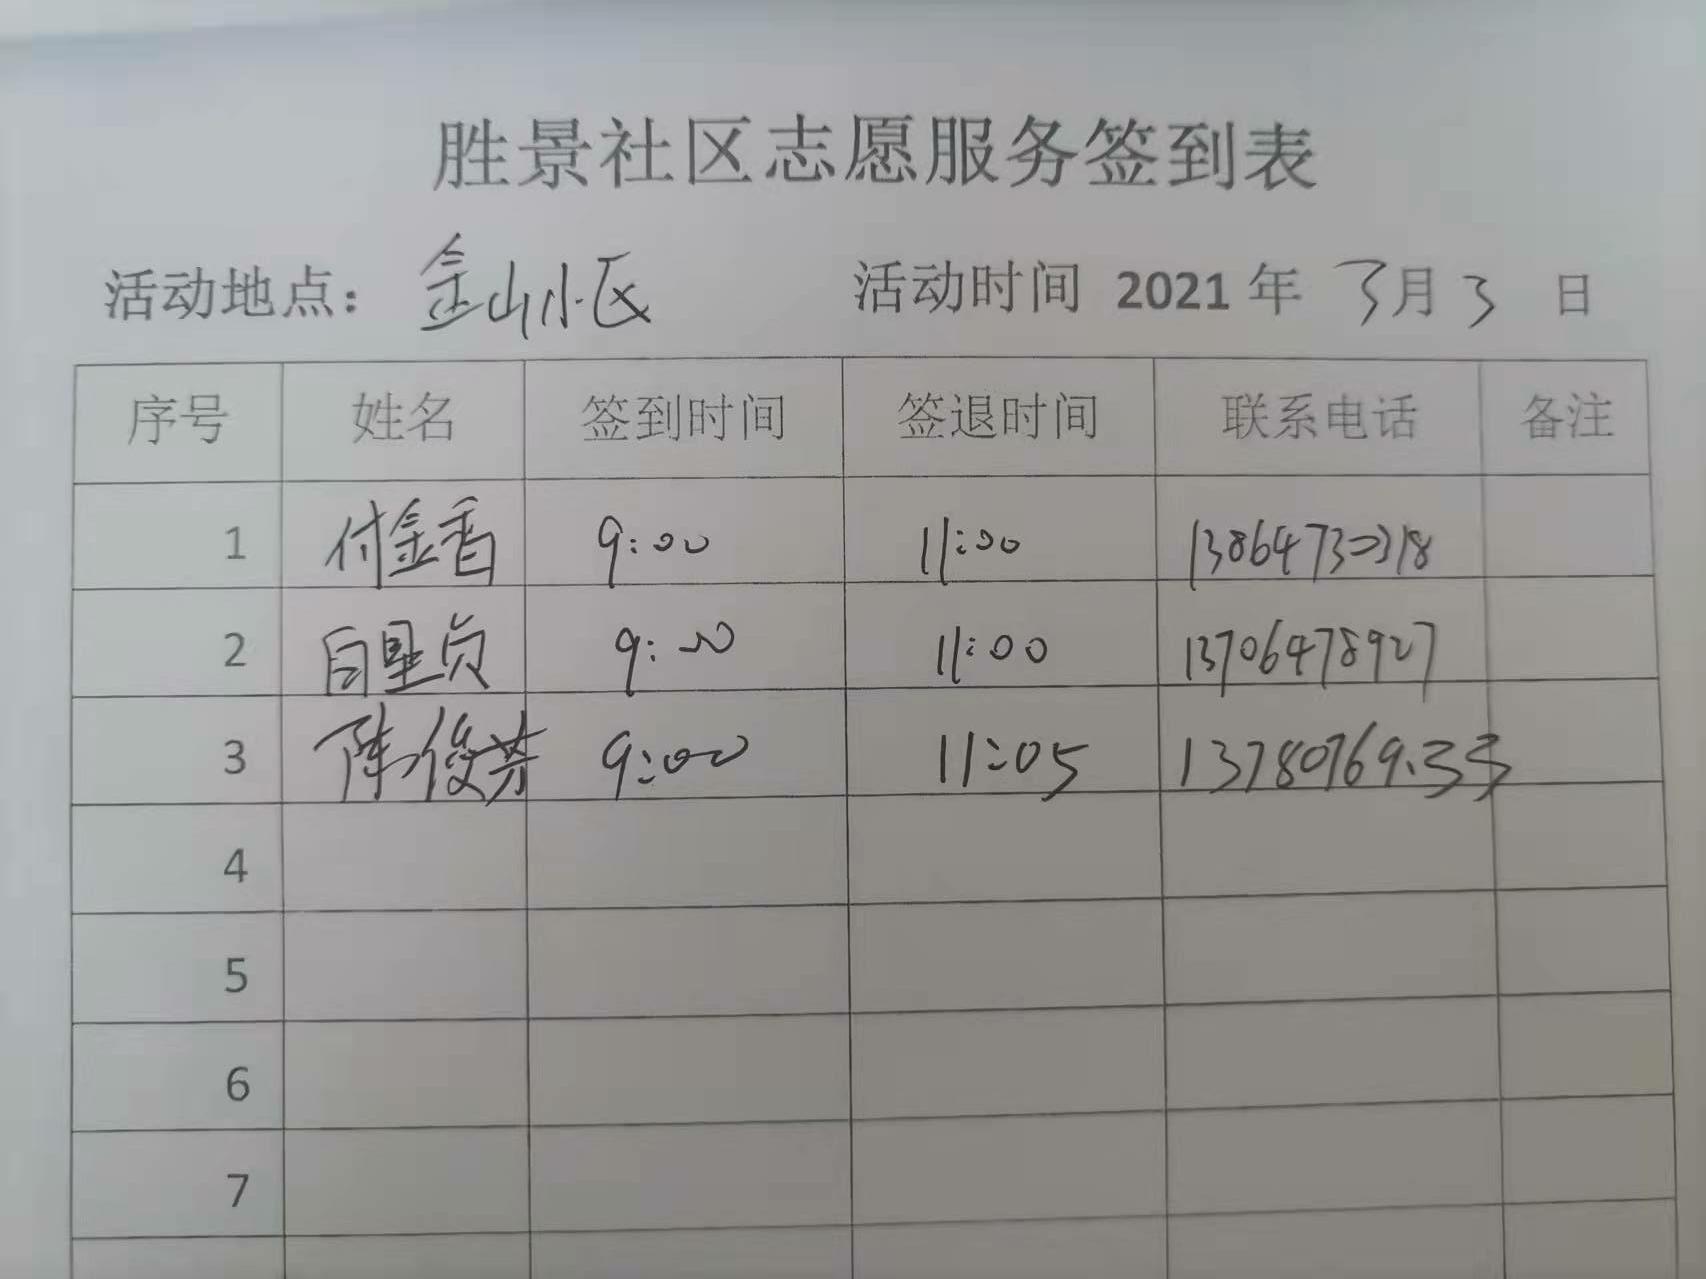 胜景社区志愿服务签到表
活动地点：金山小区 活动时间 2021 年 3月 3 日
序号 姓名 签到时间 签退时间 联系电话 备注
1 付金香 9:00 11:00
2 9:00 11:00 13706478927
3 陈俊芳 9:00 11:05
4
5
6
7